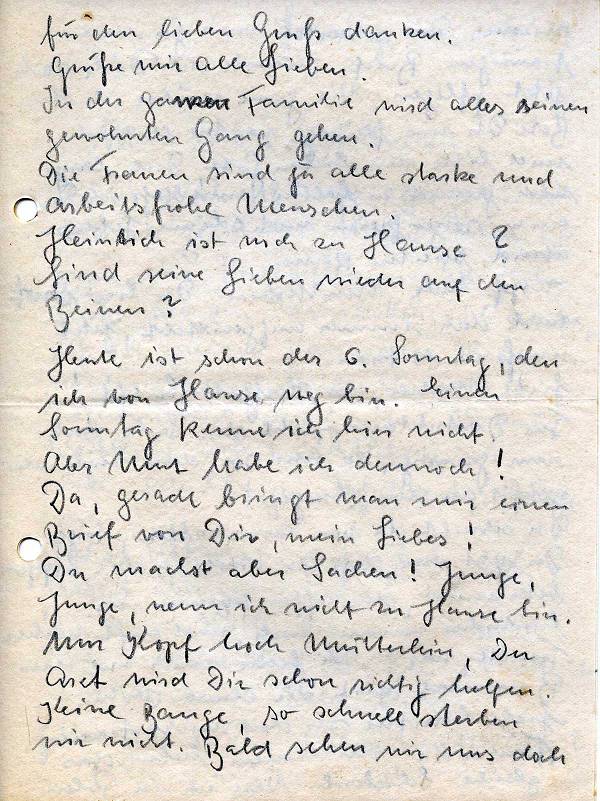 für den lieben Gruß danken.
Grüße mir alle Lieben.
In der ganzen Familie wird alles seinen
gewohnten Gang gehen.
Die Frauen sind ja alle starke und
arbeitsfrohe Menschen.
Heinrich ist noch zu Hause?
Sind seine Lieben wieder auf den
Beinen?
Heute ist schon der 6. Sonntag, den
ich von Hause weg bin. Einen
Sonntag kenne ich hier nicht.
Aber Mut habe ich dennoch!
Da, gerade bringt man mir einen
Brief von Dir, mein Liebes!
Du machst aber Sachen! Junge,
Junge, wenn ich nicht zu Hause bin.
Nur Kopf hoch Mütterlein, Der
Arzt wird Dir schon richtig helfen.
Keine Bange, so schnell sterben
wir nicht. Bald sehen wir uns doch